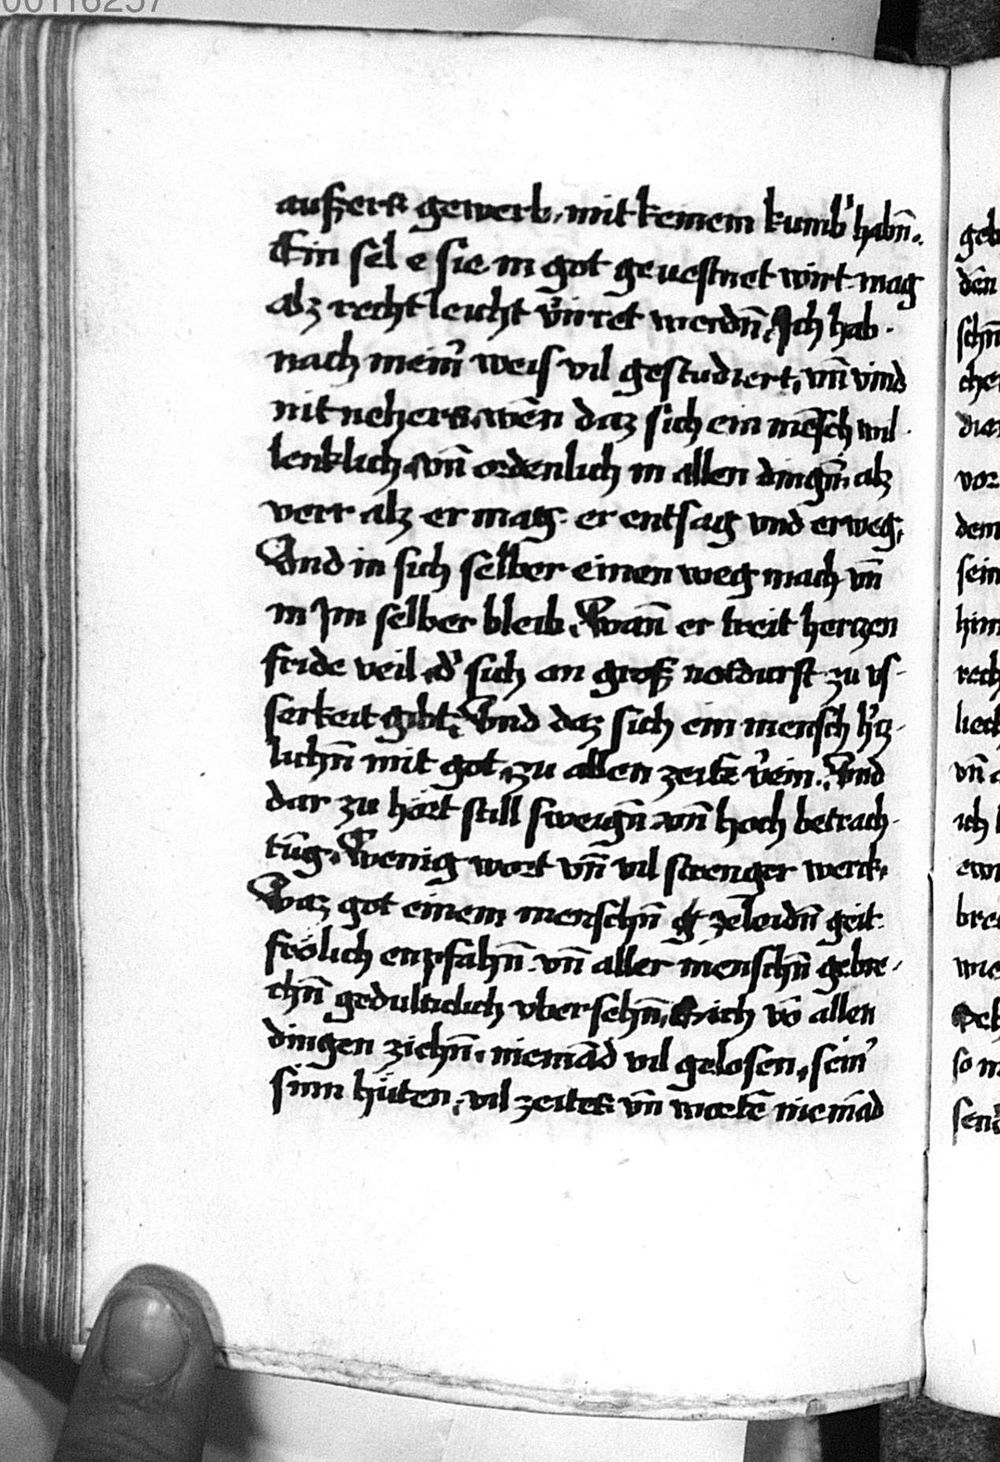 00116257
außers gewerb, mit keinem kumb' habn̄.
Ein sel e sie in got geuestnet wirt mag
alz recht leicht v'irret werdn̄. Ich hab
nach meim̄ weis vil gestudiert, vnn̄ vind
nit nehers, wen̄ daz sich ein mēsch wil
lenklich, vnn̄ ordenlich in allen dingn̄, alz
verr alz er mag, er entsag vnd erweg,
Vnd in sich selber einen weg mach vn̄
in Im selber bleib. Wan̄ er treit herczen
fride veil, d' sich an groß notdurft zu vs
serkeit gibt. Vnd daz sich ein mensch h'tz
lichn̄ mit got, zu allen zeitē v'ein. Vnd
dar zu hört still sweign̄ vnn̄ hoch betrach
tūg. Wenig wort vn̄ vil strenger werck,
Waz got einem menschn̄ zeleidn̄ geit
frölich enpfahn̄ vn̄ aller menschn̄ gebre
chn̄ gedulticlich vbersehn̄, sich vō allen
dingen ziehn̄, niemād vil gelosen, sein'
sinn hüten, vil zeiten vn̄ wortē niemād
geb
den
schn̄
che
die
vor
dem
sein
him
rech
lieck
vn̄ a
ich
ewi
bre
wie
so m